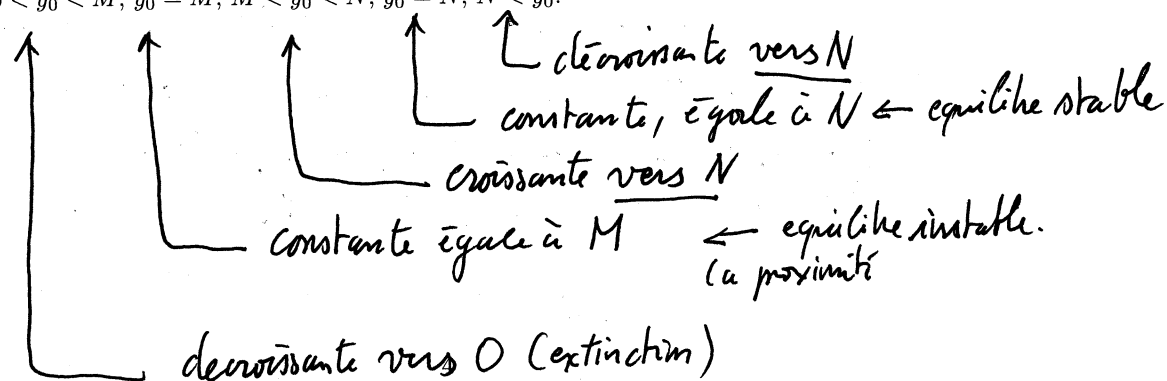 < y₀ < M, y₀ = M, M < y₀ < N, y₀ = N, N < y₀.
décroissante vers N
constante, égale à N ← equilibre stable
croissante vers N
constante égale à M ← equilibre instable.
(a proximité
decroissante vers O (extinction)